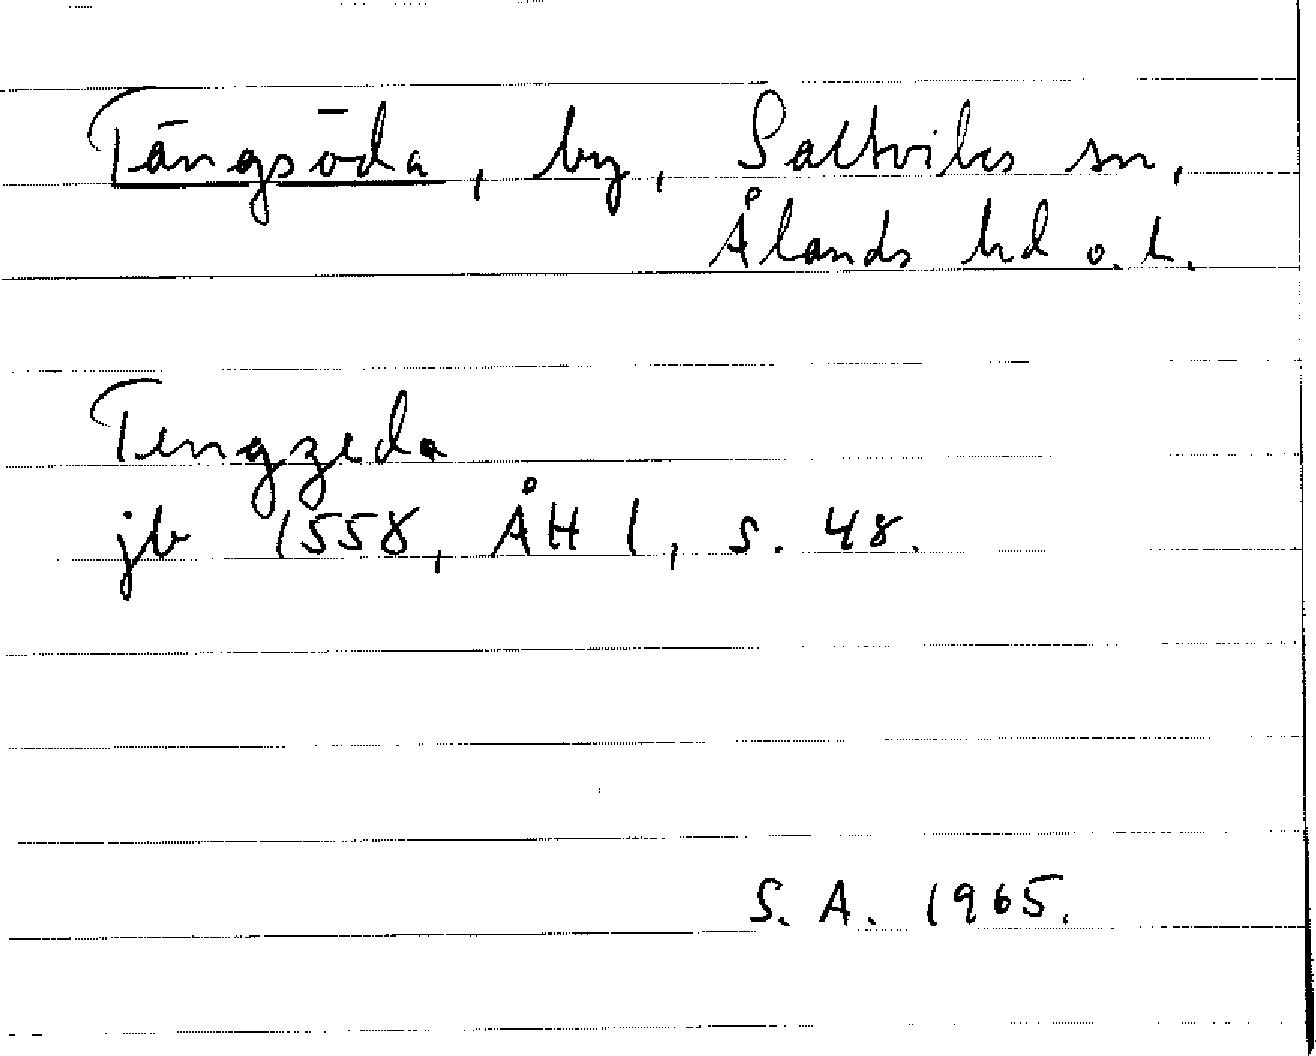 Tängsöda, by, Saltviks sn,
Ålands hd o. L.
Tengzeda
jb 1558, ÅH 1, s. 48.
S. A. 1965.